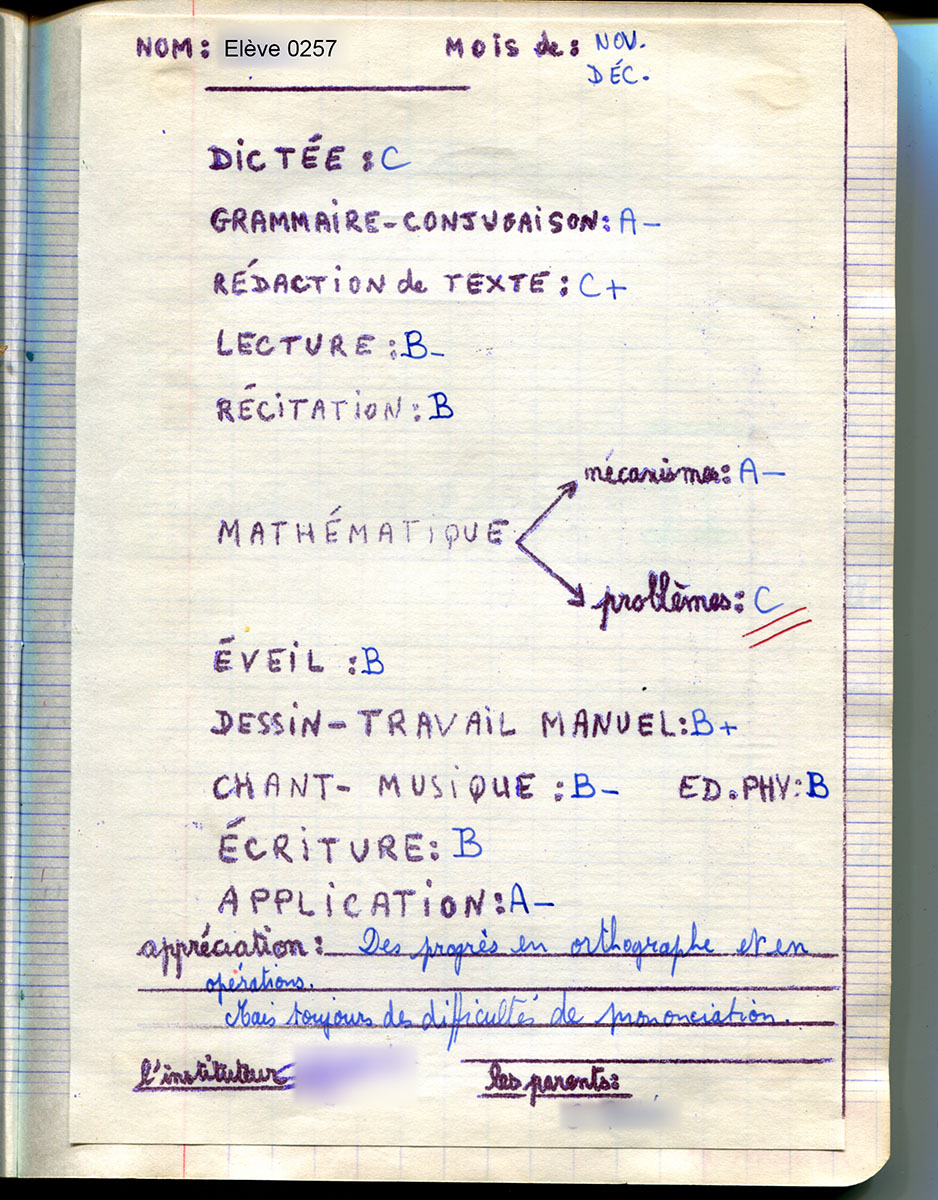 NOM: Elève 0257 MOIS de: NOV.
DÉC.
DICTÉE : C
GRAMMAIRE-CONJUGAISON: A-
RÉDACTION de TEXTE : C+
LECTURE : B-
RÉCITATION : B
mécanismes: A-
MATHÉMATIQUE
problèmes: C
ÉVEIL : B
DESSIN-TRAVAIL MANUEL: B+
CHANT-MUSIQUE : B- ED.PHY: B
ÉCRITURE: B
APPLICATION: A-
appréciation: Des progrès en orthographe et en
opérations.
Mais toujours des difficultés de prononciation.
l'instituteur les parents: